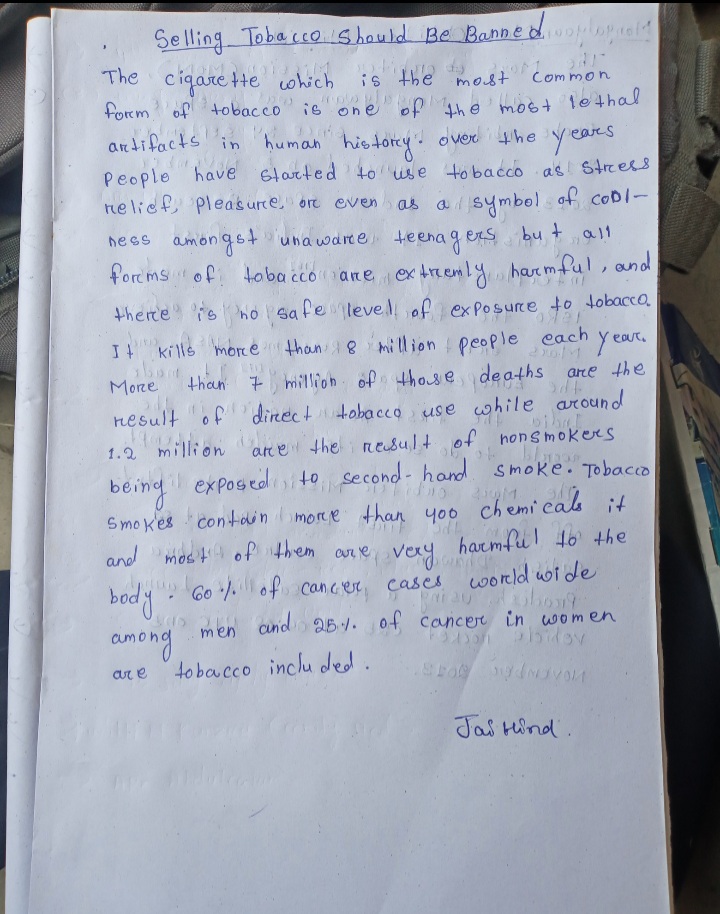 Selling Tobacco Should Be Banned
The cigarette which is the most common
form of tobacco is one of the most lethal
artifacts in human history. over the years
People have started to use tobacco as stress
relief, pleasure, or even as a symbol of cool-
ness amongst unaware teenagers but all
forms of tobacco are extremly harmful, and
there is no safe level of exposure to tobacco.
It kills more than 8 million people each year.
More than 7 million of those deaths are the
result of direct tobacco use while around
1.2 million are the result of nonsmokers
being exposed to second-hand smoke. Tobacco
smokes contain more than 400 chemicals it
and most of them are very harmful to the
body. 60% of cancer cases world wide
among men and 25% of cancer in women
are tobacco included.
Jai Hind.